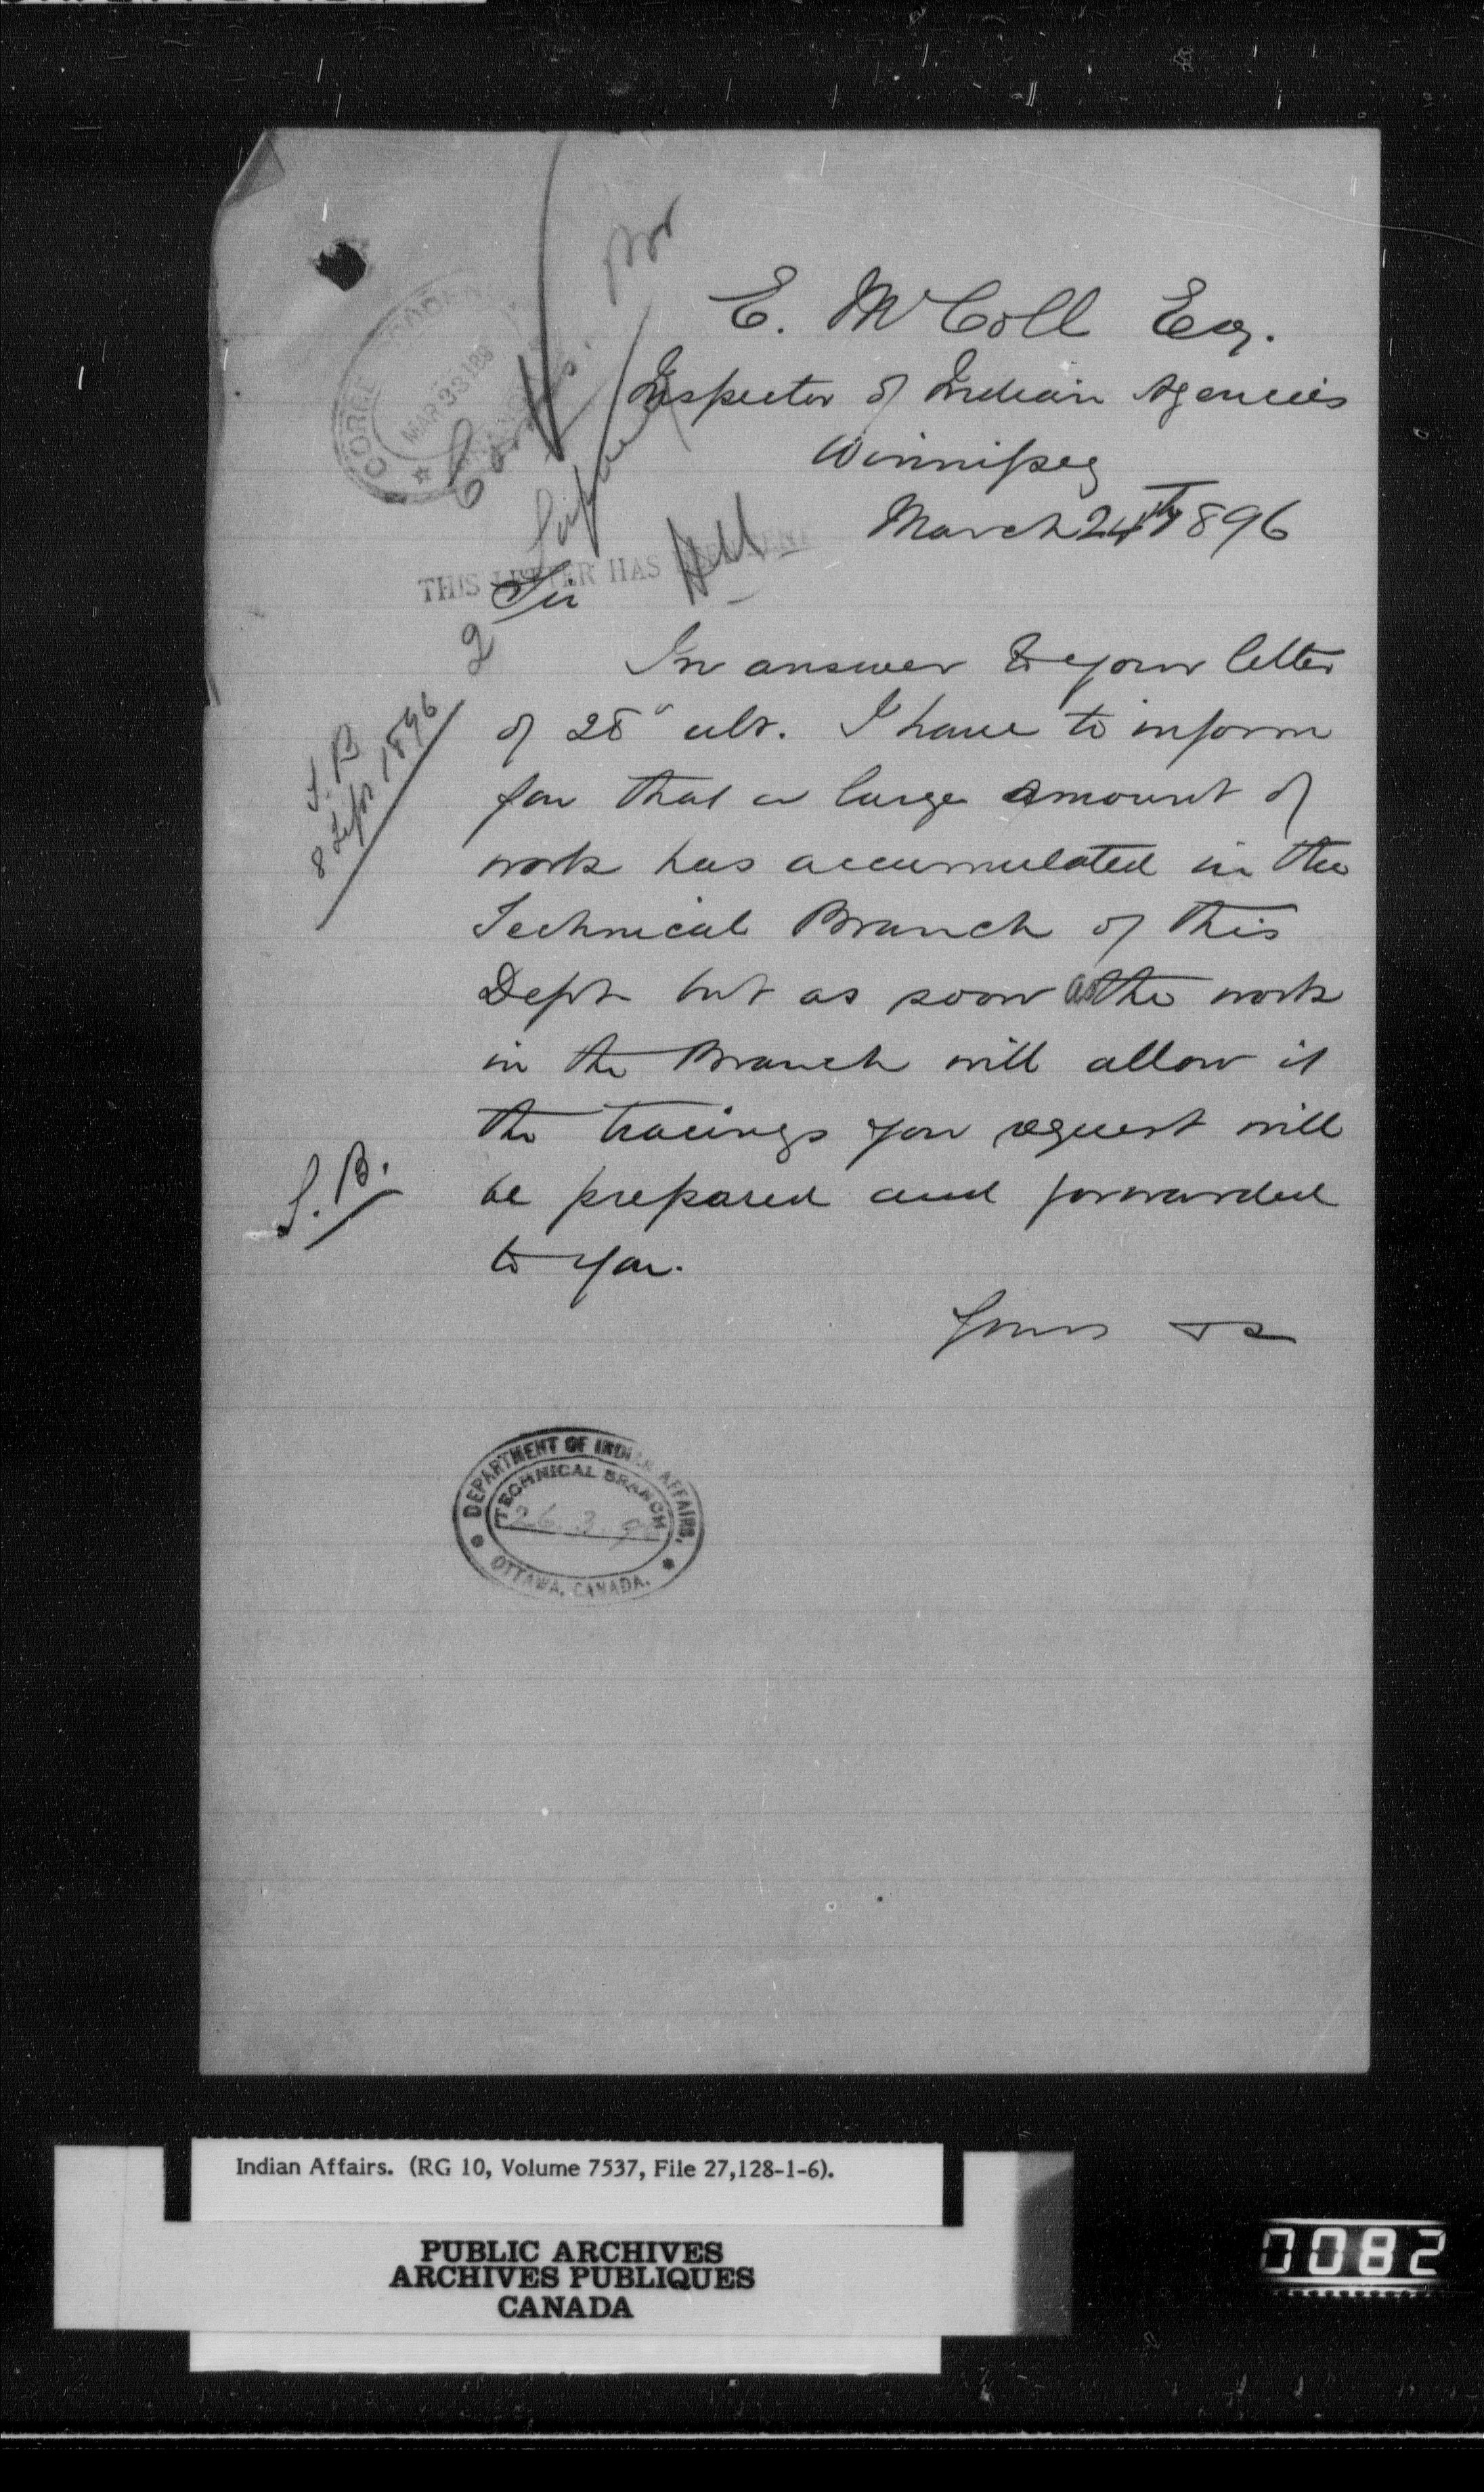 E. McColl Esq.
Inspector of Indian Agencies
Winnipeg
March 24th 1896
THIS LETTER HAS
Sir
2
In answer to your letter
of 28" ult. I have to inform
you that a large amount of
work has accumulated in the
Technical Branch of this
Dept but as soon as the work
in the Branch will allow it
the tracings you request will
be prepared and forwarded
to you.
Yours
T. B
8 Sept 1896
S. B.
MAR 23 189
DEPARTMENT OF INDIAN AFFAIRS,
TECHNICAL BRANCH
26 3 96
OTTAWA, CANADA.
Indian Affairs. (RG 10, Volume 7537, File 27,128-1-6).
PUBLIC ARCHIVES
ARCHIVES PUBLIQUES
CANADA
0082